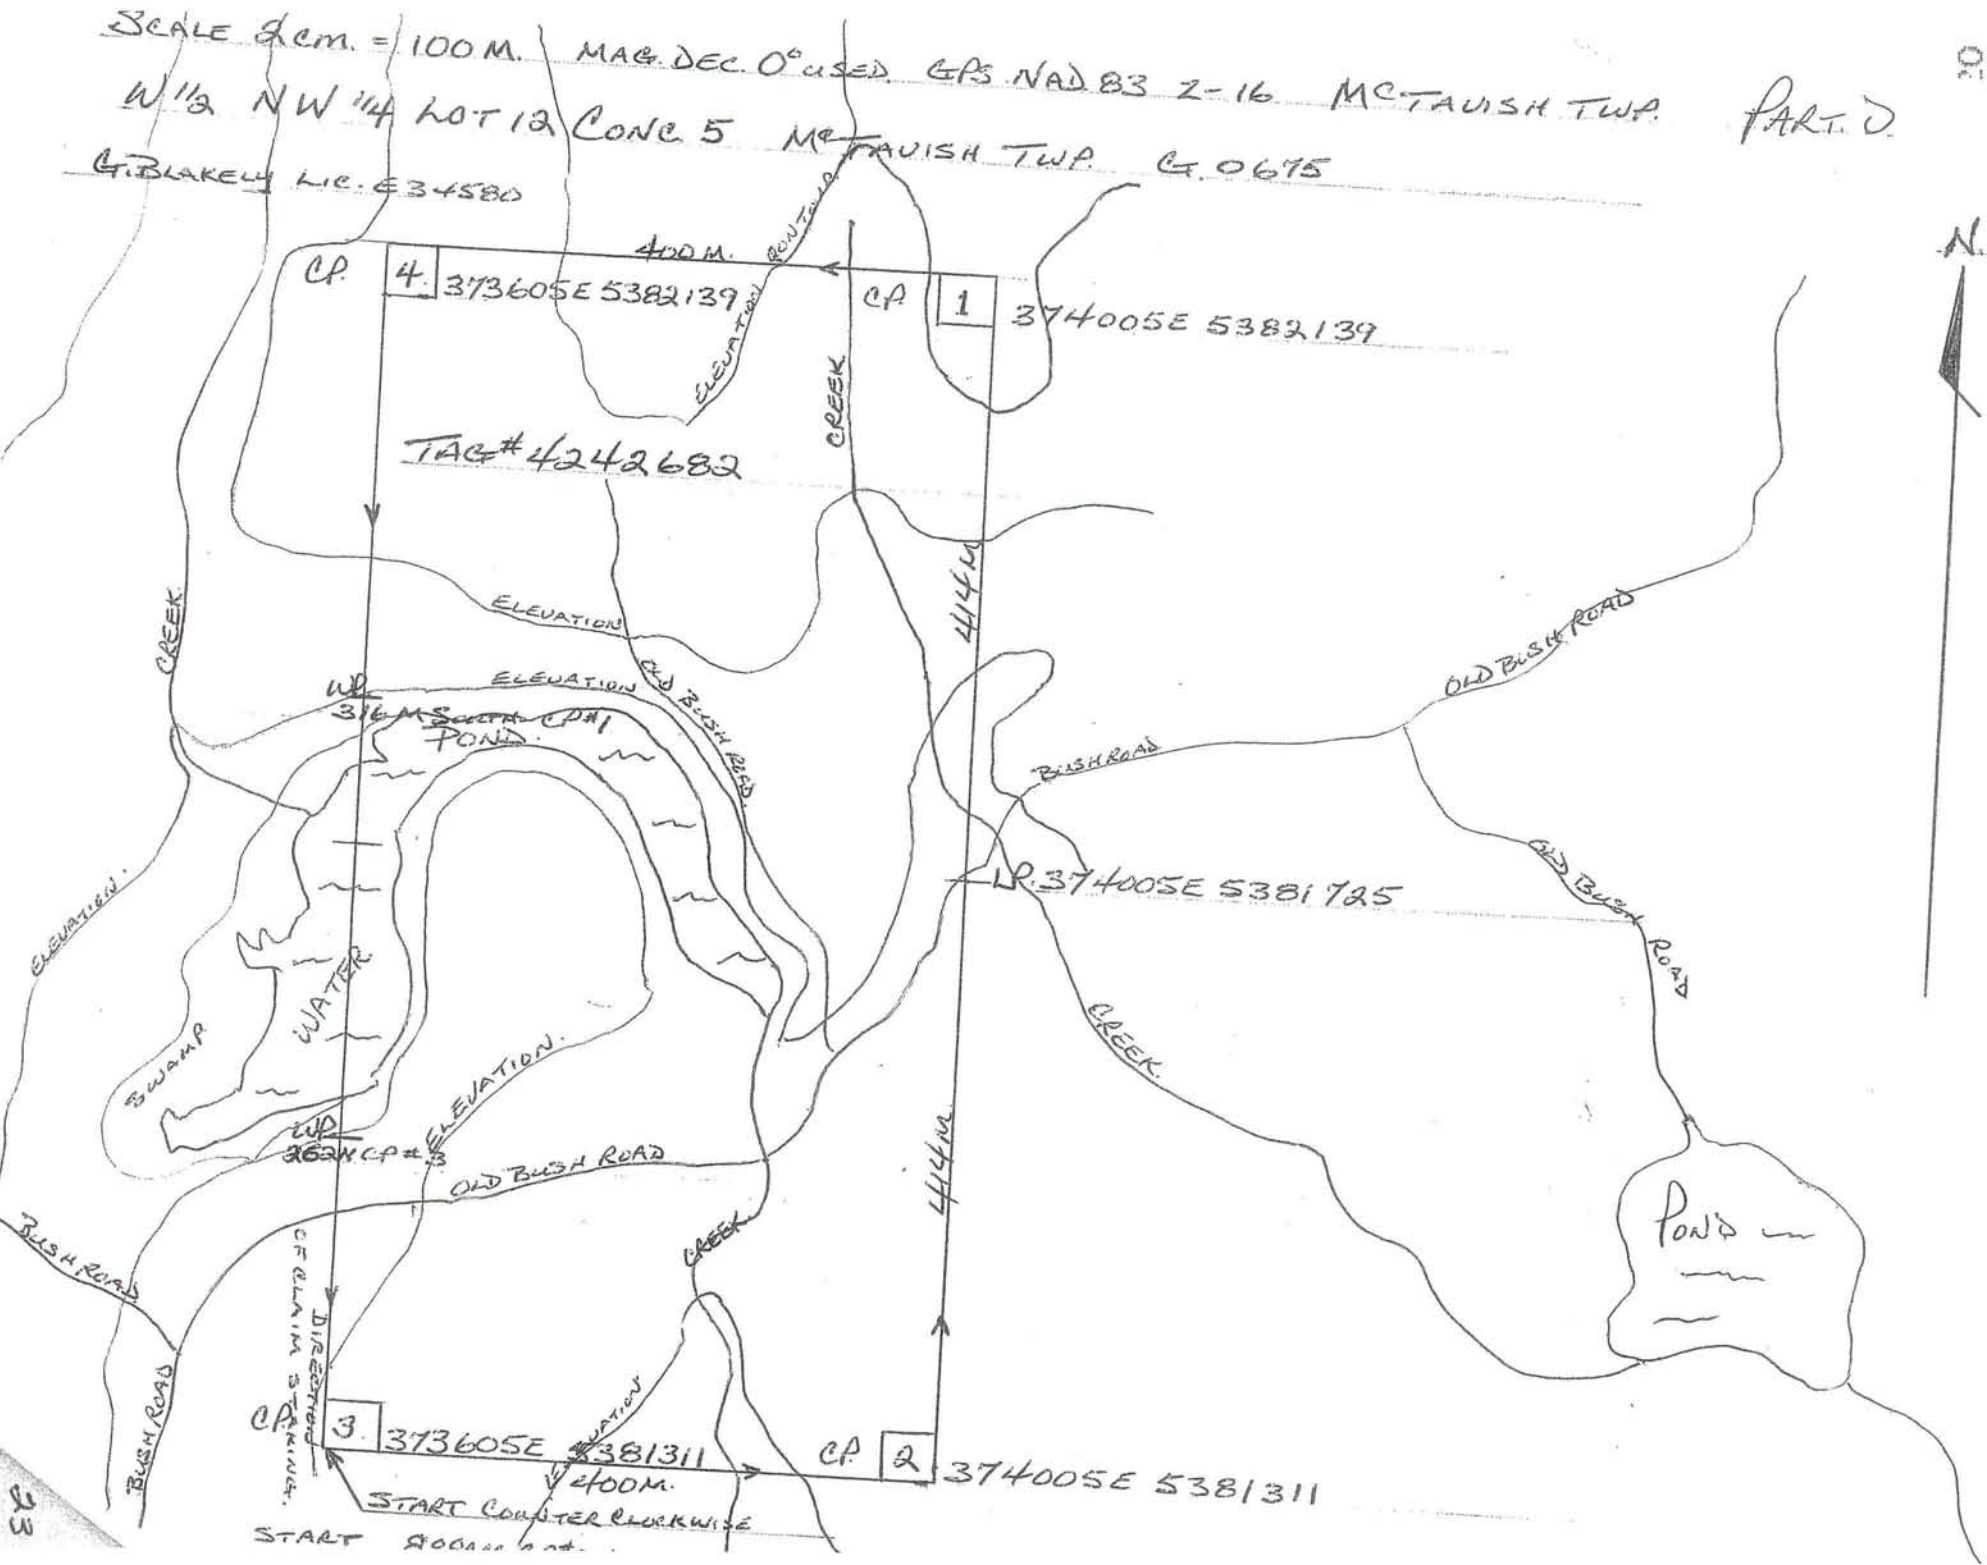 SCALE 2cm. = 100 M. MAG. DEC. 0° USED. GPS NAD 83 Z-16 McTAVISH TWP. PART. D
W 1/2 NW 1/4 LOT 12 CONC 5 McTAVISH TWP. G. 0675
G. BLAKELY LIC. E34580
20
N.
400 M.
ELEVATION CONTOUR
CP. 4. 373605E 5382139
CP. 1 374005E 5382139
CREEK
TAG # 4242682
414 M
CREEK
ELEVATION
ELEVATION
OLD BUSH ROAD.
OLD BUSH ROAD
WP
316 M SOUTH CP#1
POND.
BUSH ROAD
OLD BUSH ROAD
374005E 5381725
ELEVATION.
WATER
SWAMP
ELEVATION.
CREEK.
WP
262 N CP # 3
OLD BUSH ROAD
414 M.
CREEK
POND
BUSH ROAD.
BUSH ROAD
DIRECTION
OF CLAIM STAKING.
CP. 3. 373605E 5381311
ELEVATION
400 M.
CP. 2 374005E 5381311
START COUNTER CLOCKWISE
START
23